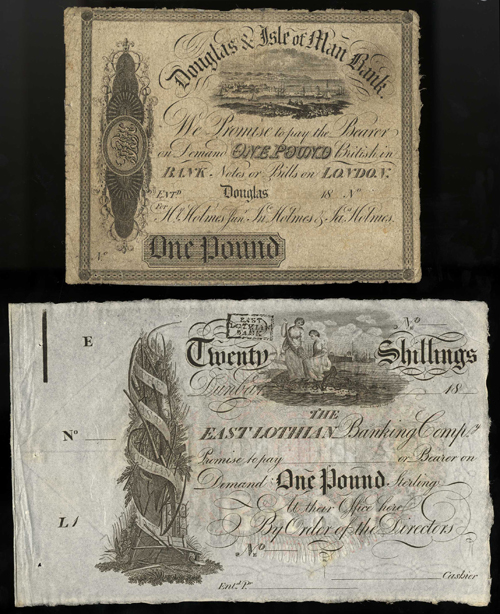 Douglas & Isle of Man Bank.
We Promise to pay the Bearer
on Demand ONE POUND British in
BANK Notes or Bills on LONDON.
ENTD. Douglas 18 No
For
Hy. Holmes Junr. Jno. Holmes & Jas. Holmes.
No
One Pound
E
EAST
LOTHIAN
BANK
No
Twenty Shillings
Dunbar 18
THE
No
EAST LOTHIAN Banking Compy.
Promise to pay or Bearer on
Demand One Pound Sterling
At their Office here
L
By Order of the Directors
No
Cashier
Entd. Pr.